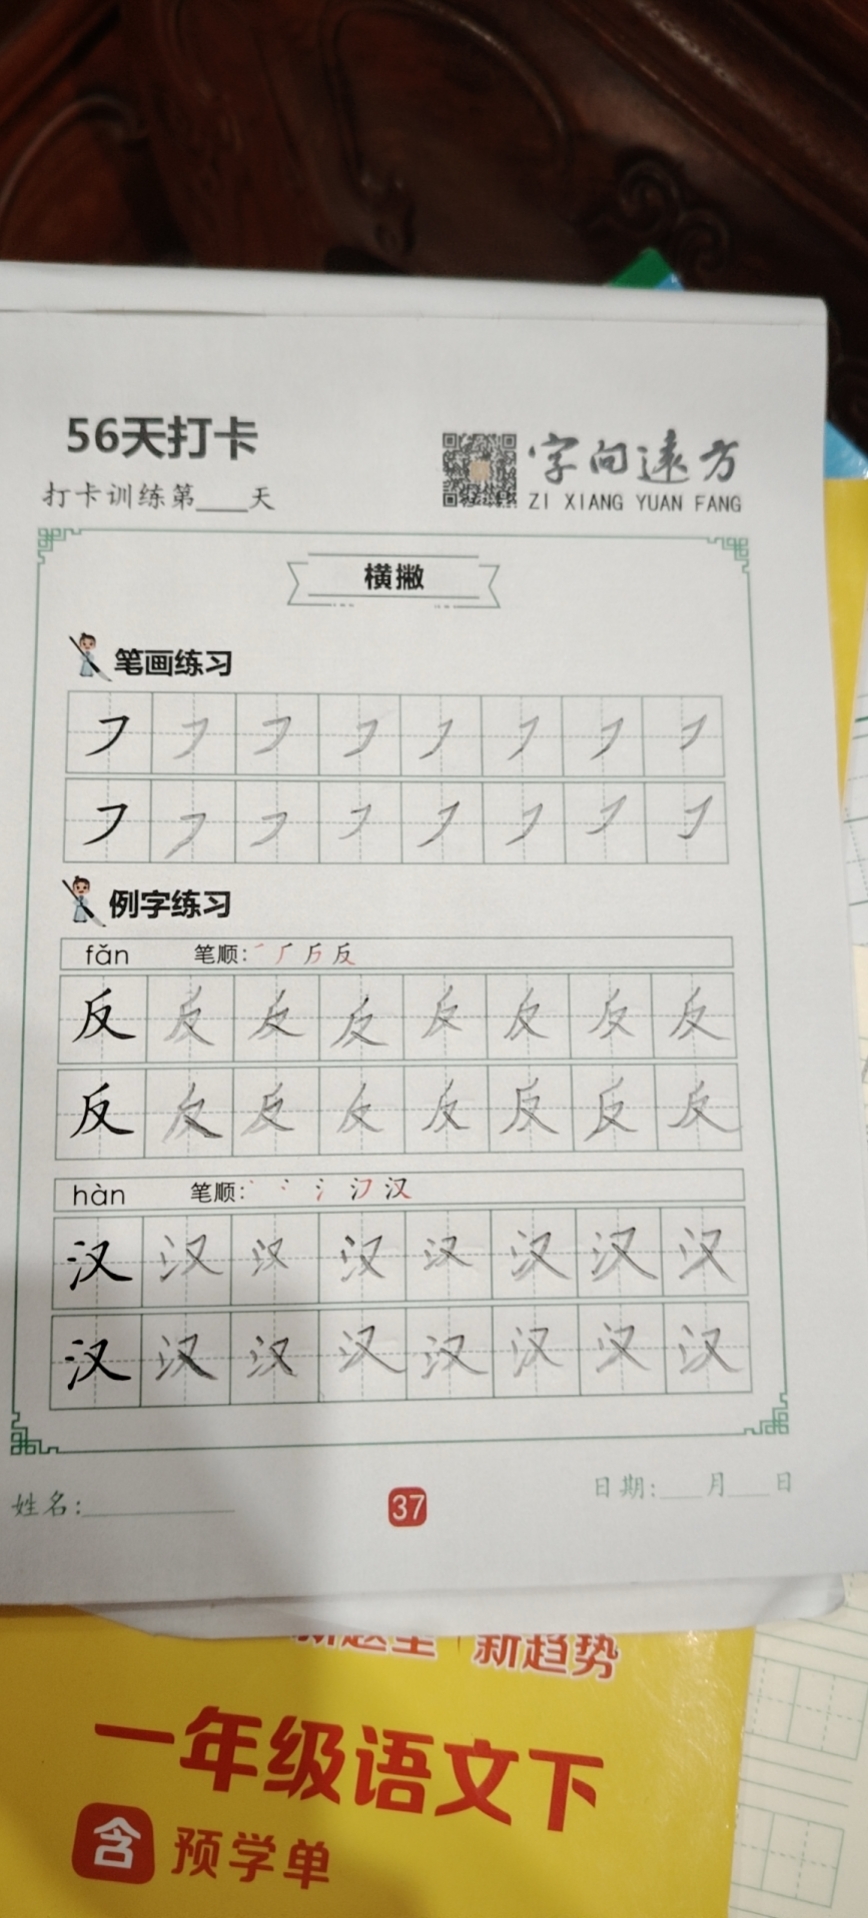 56天打卡
打卡训练第___天
字向远方
ZI XIANG YUAN FANG
横撇
笔画练习
㇇ ㇇ ㇇ ㇇ ㇇ ㇇ ㇇ ㇇
㇇ ㇇ ㇇ ㇇ ㇇ ㇇ ㇇ ㇇
例字练习
fǎn 笔顺: 一 厂 反
反 反 反 反 反 反 反 反
反 反 反 反 反 反 反 反
hàn 笔顺: 丶 冫 氵 汉
汉 汉 汉 汉 汉 汉 汉 汉
汉 汉 汉 汉 汉 汉 汉 汉
姓名:__________
37
日期:___月___日
新趋势
一年级语文下
含 预学单